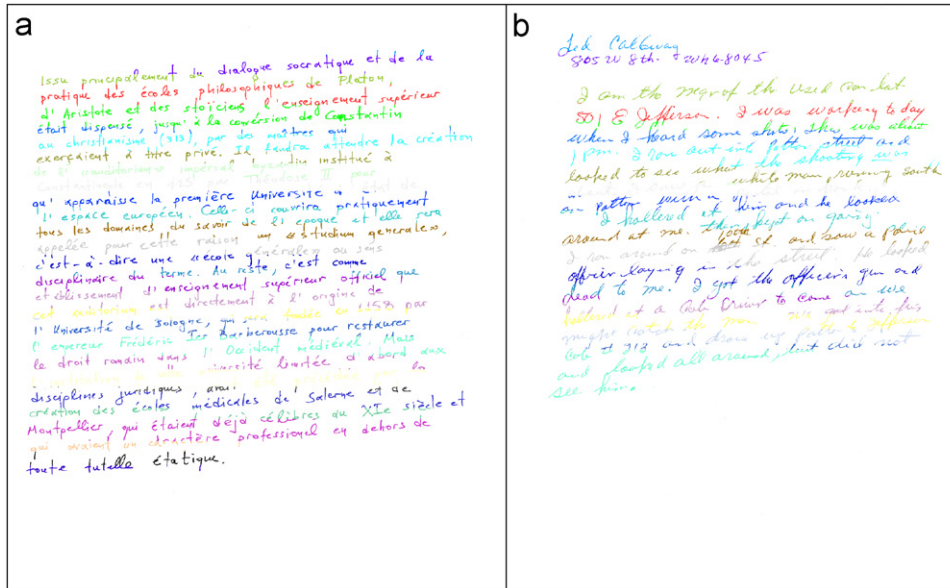 a
Issu principalement du dialogue socratique et de la
pratique des écoles philosophiques de Platon,
d'Aristote et des stoïciens, l'enseignement supérieur
était dispensé, jusqu'à la conversion de Constantin
au christianisme (313), par des maîtres qui
exerçaient à titre privé. Il faudra attendre la création
de l'auditorium impérial institué à
Constantinople en 425 par Théodose II pour
qu'apparaisse la première Université
l'espace européen. Celle-ci couvrira pratiquement
tous les domaines du savoir de l'époque et elle sera
appelée pour cette raison un «studium generale»,
c'est-à-dire une «école générale» ou sans
disciplinaire du terme. Au reste, c'est comme
établissement d'enseignement supérieur officiel que
cet auditorium est directement à l'origine de
l'Université de Bologne, qui sera fondée en 1158 par
l'empereur Frédéric Ier Barberousse pour restaurer
le droit romain dans l'Occident médiéval. Mais
limitée d'abord aux
disciplines juridiques, avec la
création des écoles médicales de Salerne et de
Montpellier, qui étaient déjà célèbres du XIe siècle et
qui avaient un caractère professionnel en dehors de
toute tutelle étatique.
b
Ted Callaway
805 W 8th. WH6-8045
I am the mgr of the used car lot
501 E Jefferson. I was working to day
when I heard some shots, this was about
1 pm. I ran out into Patton street and
looked to see what the shooting was
white man, running south
on Patton
I hollered at him and he looked
around at me. kept on going.
I ran around on and saw a police
officer laying in the street. He looked
dead to me. I got the officers gun and
hollered at a Cab Driver to come on we
might catch the man. We got into his
Cab # 213 and drove up Patton to Jefferson
and looked all around, but did not
see him.